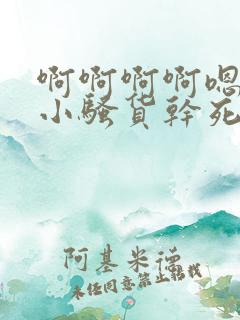 啊啊啊啊嗯
小骚货幹死
阿基米德
未经同意禁止转载